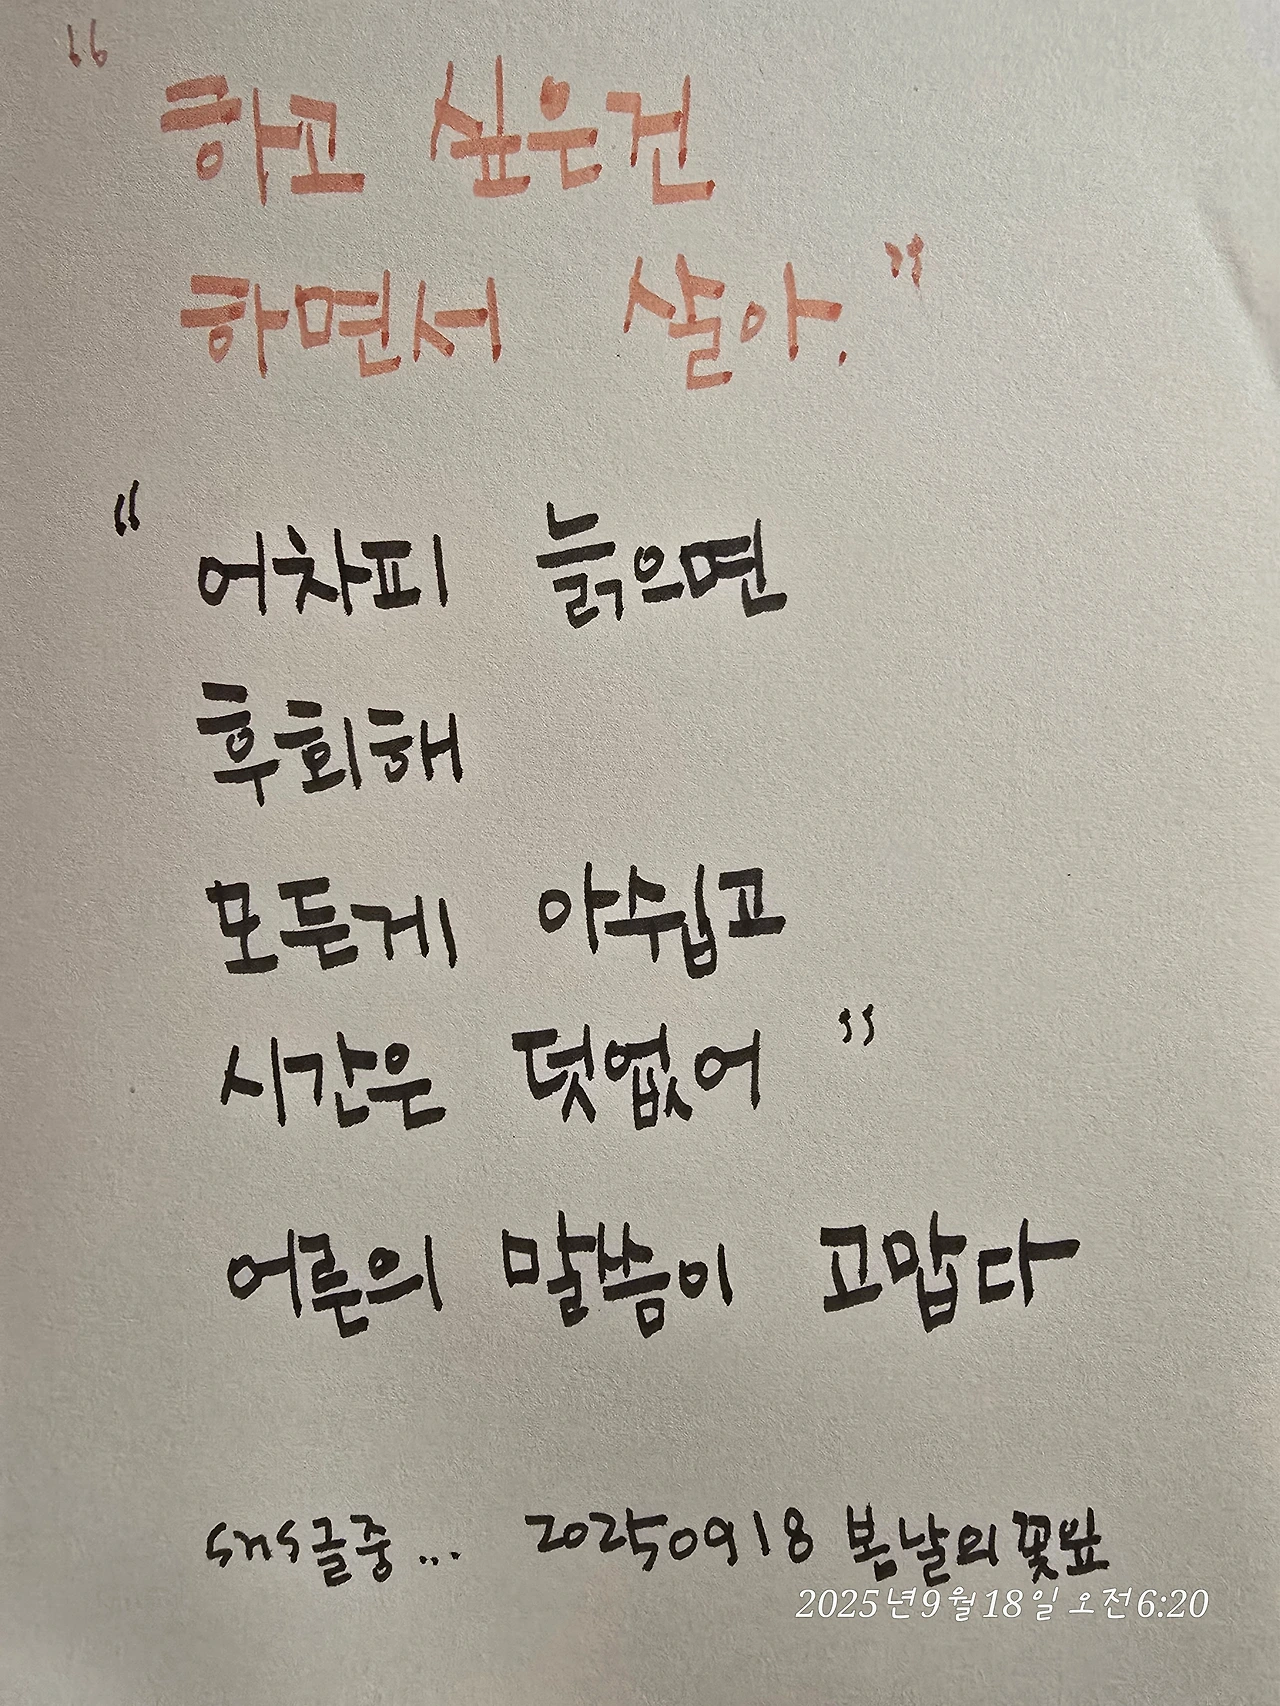 "하고 싶은건
하면서 살아."
"어차피 늙으면
후회해
모든게 아쉽고
시간은 덧없어"
어른의 말씀이 고맙다
sns글중... 20250918 봄날의꽃잎
2025년9월18일 오전6:20